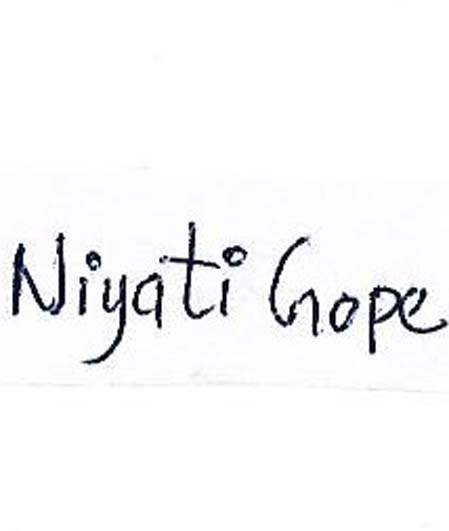 Niyati Gope